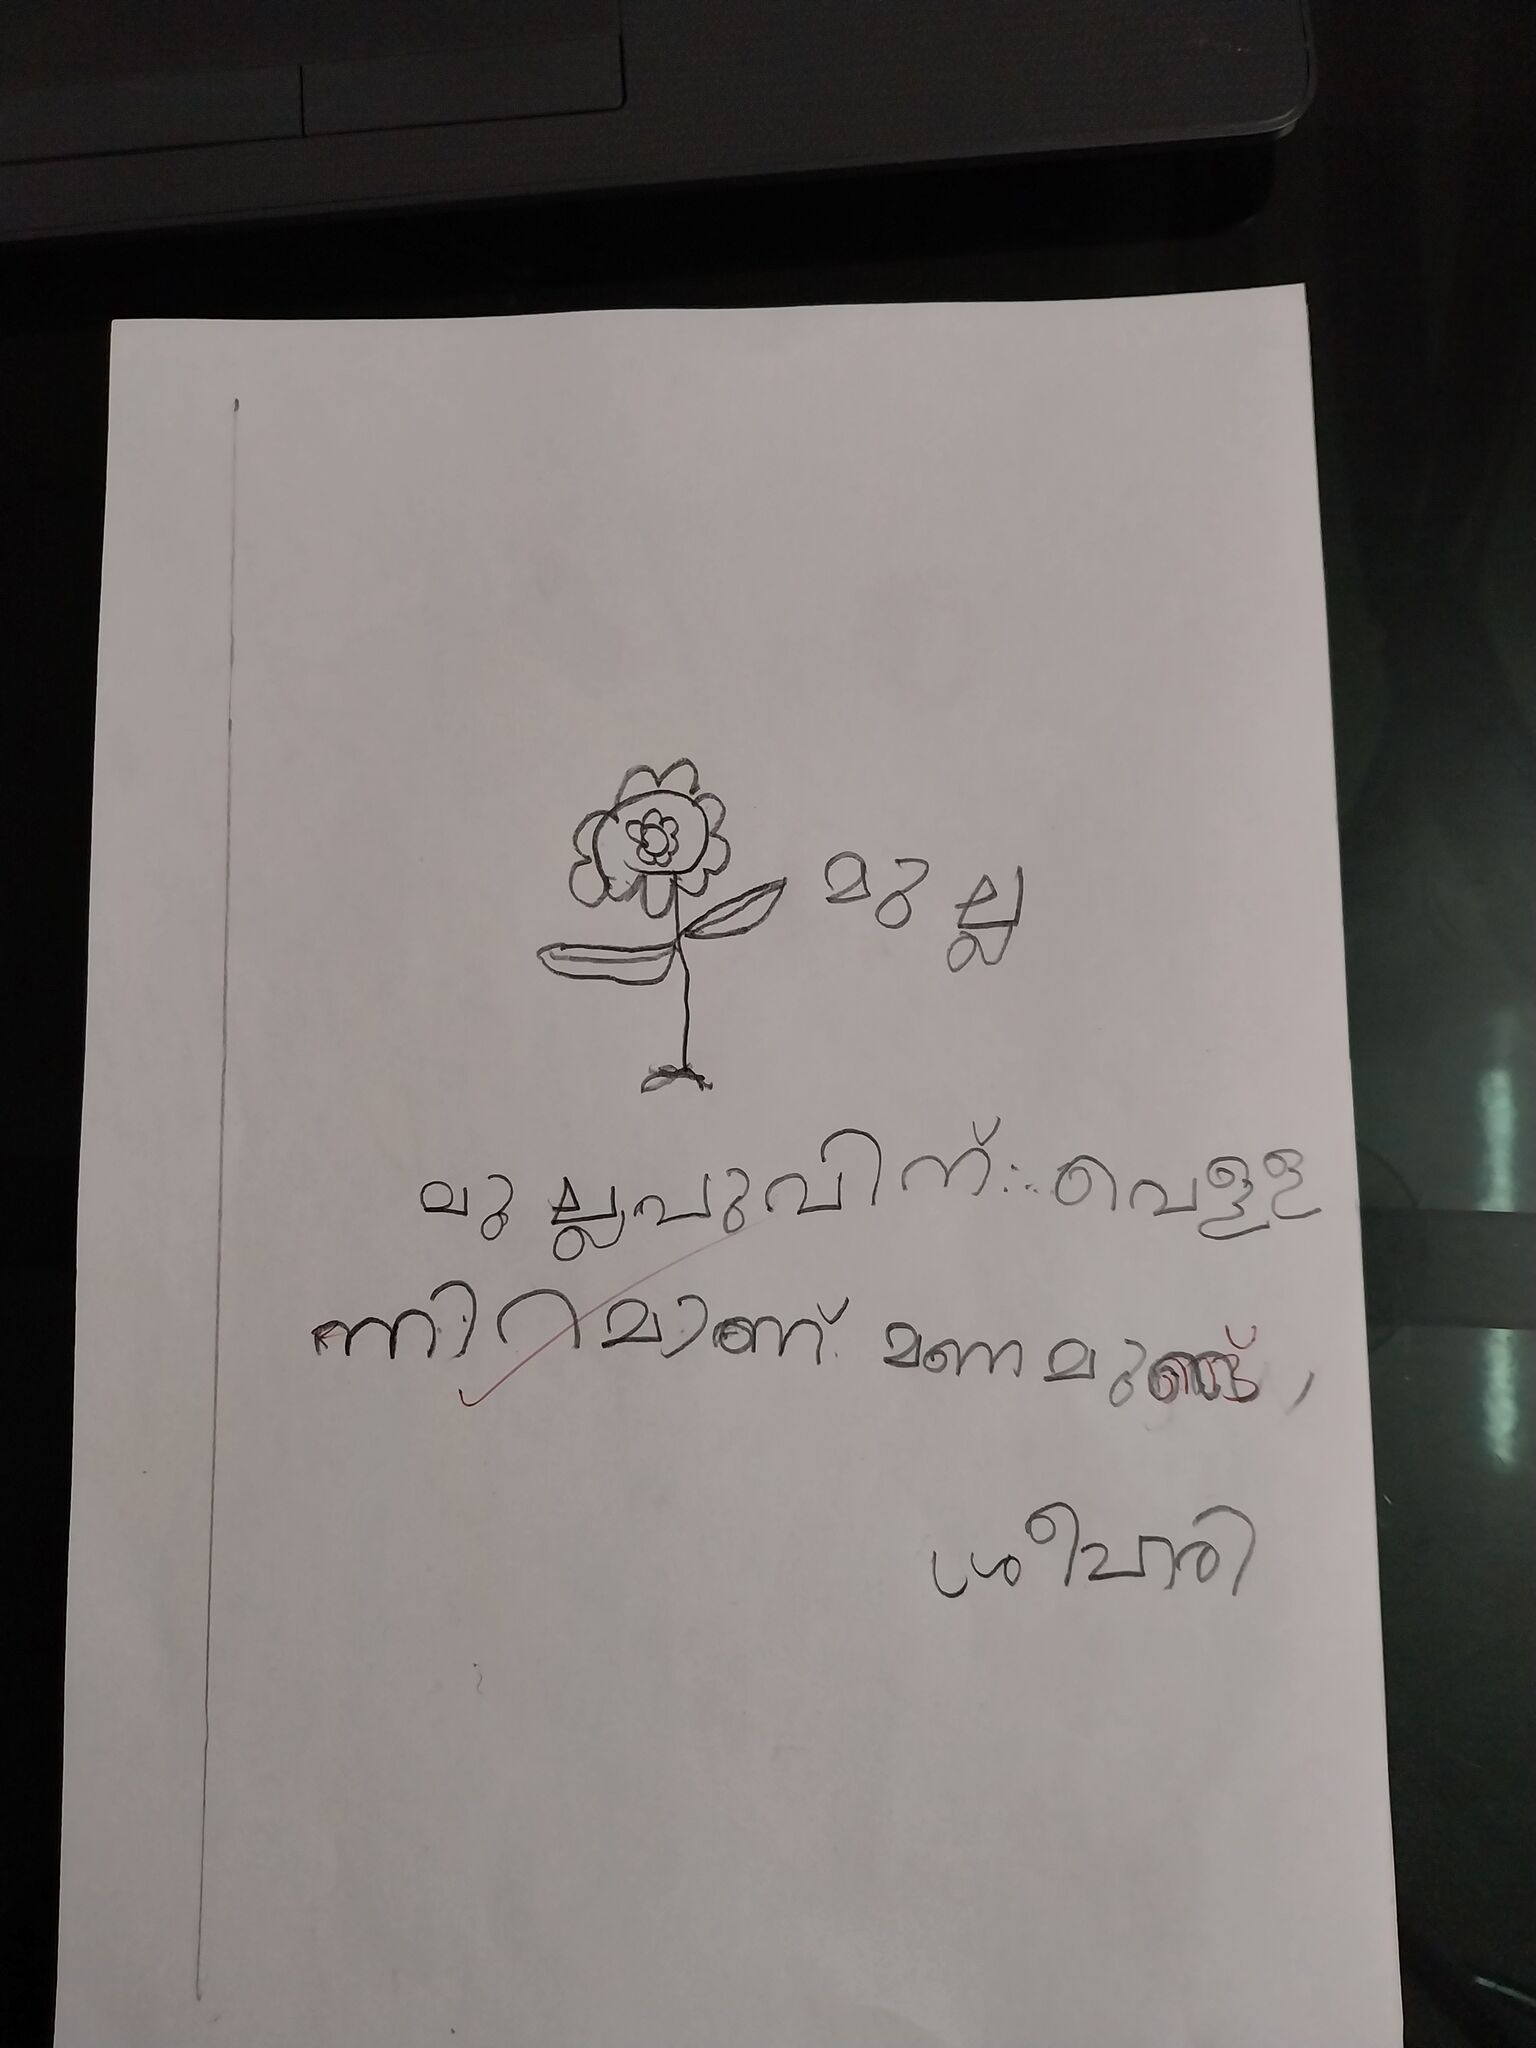 മുല്ല
മുല്ലപുവിന് വെള്ള
നിറമാണ് മണമുണ്ട്,
ശ്രീപാരി